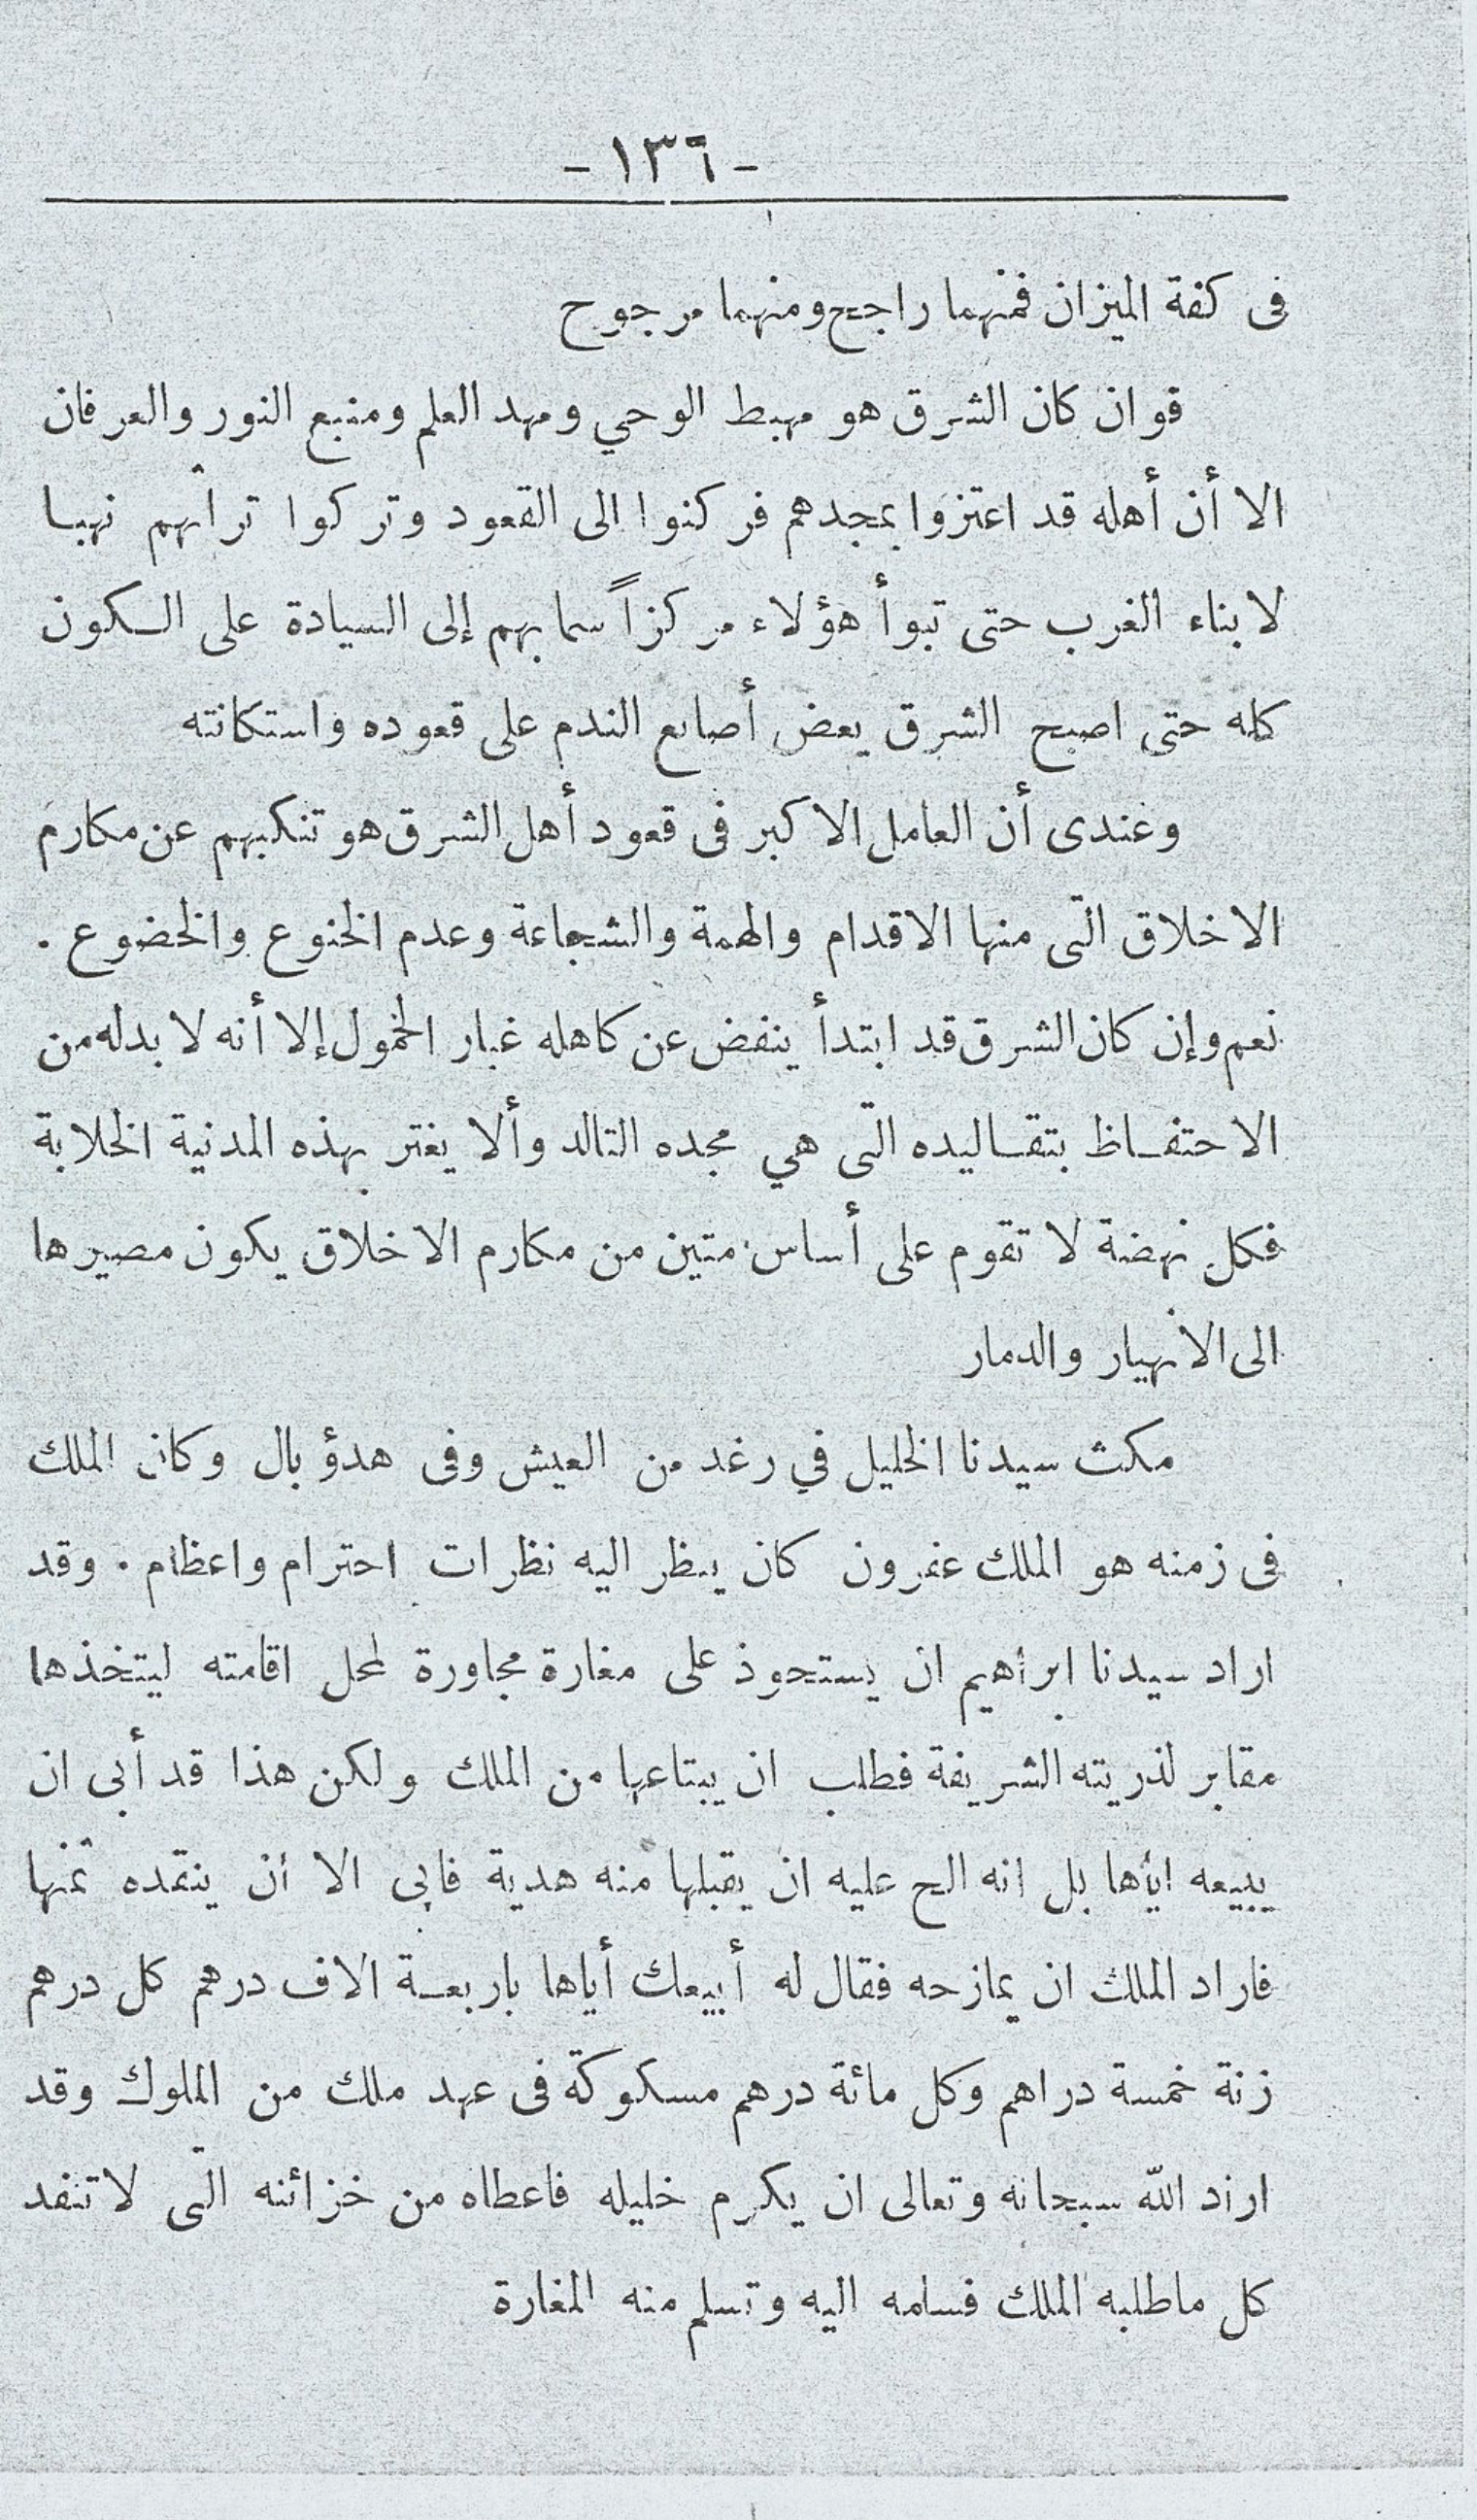 - ١٣٦ -
فى كفة الميزان فمنهما راجح ومنهما مرجوح
قوان كان الشرق هو مهبط الوحي ومهد العلم ومنبع النور والعرفان
الا أن أهله قد اعتزوا بمجدهم فركنوا الى القعود وتركوا تراثهم نهبا
لابناء الغرب حتى تبوأ هؤلاء مركزاً سما بهم إلى السيادة على السكون
كله حتى اصبح الشرق يعض أصابع الندم على قعوده واستكانته
وعندى أن العامل الاكبر فى قعود أهل الشرق هو تنكبهم عن مكارم
الاخلاق التى منها الاقدام والهمة والشجاعة وعدم الخنوع والخضوع .
نعم وإن كان الشرق قد ابتدأ ينفض عن كاهله غبار الخمول إلا أنه لا بدله من
الاحتفاظ بتقاليده التى هي مجده التالد وألا يغتر بهذه المدنية الخلابة
فكل نهضة لا تقوم على أساس متين من مكارم الاخلاق يكون مصيرها
الى الانهيار والدمار
مكث سيدنا الخليل في رغد من العيش وفى هدؤ بال وكان الملك
فى زمنه هو الملك عفرون كان ينظر اليه نظرات احترام واعظام . وقد
اراد سيدنا ابراهيم ان يستحوذ على مغارة مجاورة لمحل اقامته ليتخذها
مقابر لذريته الشريفة فطلب ان يبتاعها من الملك ولكن هذا قد أبى ان
يبيعه اياها بل انه الح عليه ان يقبلها منه هدية فابى الا أن ينقده ثمنها
فاراد الملك ان يمازحه فقال له أبيعك أياها باربعة الاف درهم كل درهم
زنة خمسة دراهم وكل مائة درهم مسكوكة فى عهد ملك من الملوك وقد
اراد الله سبحانه وتعالى ان يكرم خليله فاعطاه من خزائنه التى لا تنفد
كل ماطلبه الملك فسامه اليه وتسلم منه المغارة